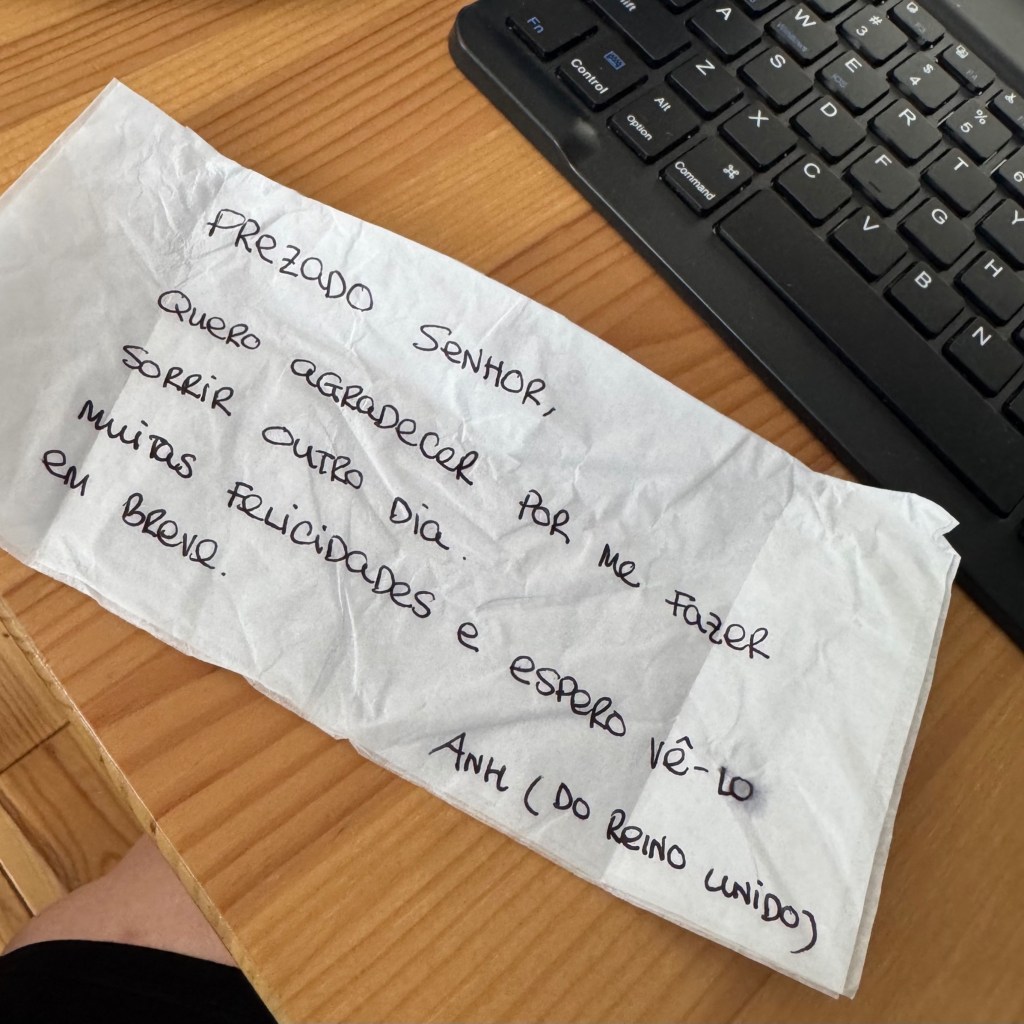 PREZADO SENHOR,
QUERO AGRADECER POR ME FAZER
SORRIR OUTRO DIA.
MUITAS FELICIDADES E ESPERO VÊ-LO
EM BREVE.
ANH (DO REINO UNIDO)
Fn
Shift
A
W
#
3
$
4
%
5
6
Control
Z
S
E
R
T
Y
Alt
Option
X
D
F
G
H
Command
⌘
C
V
B
N